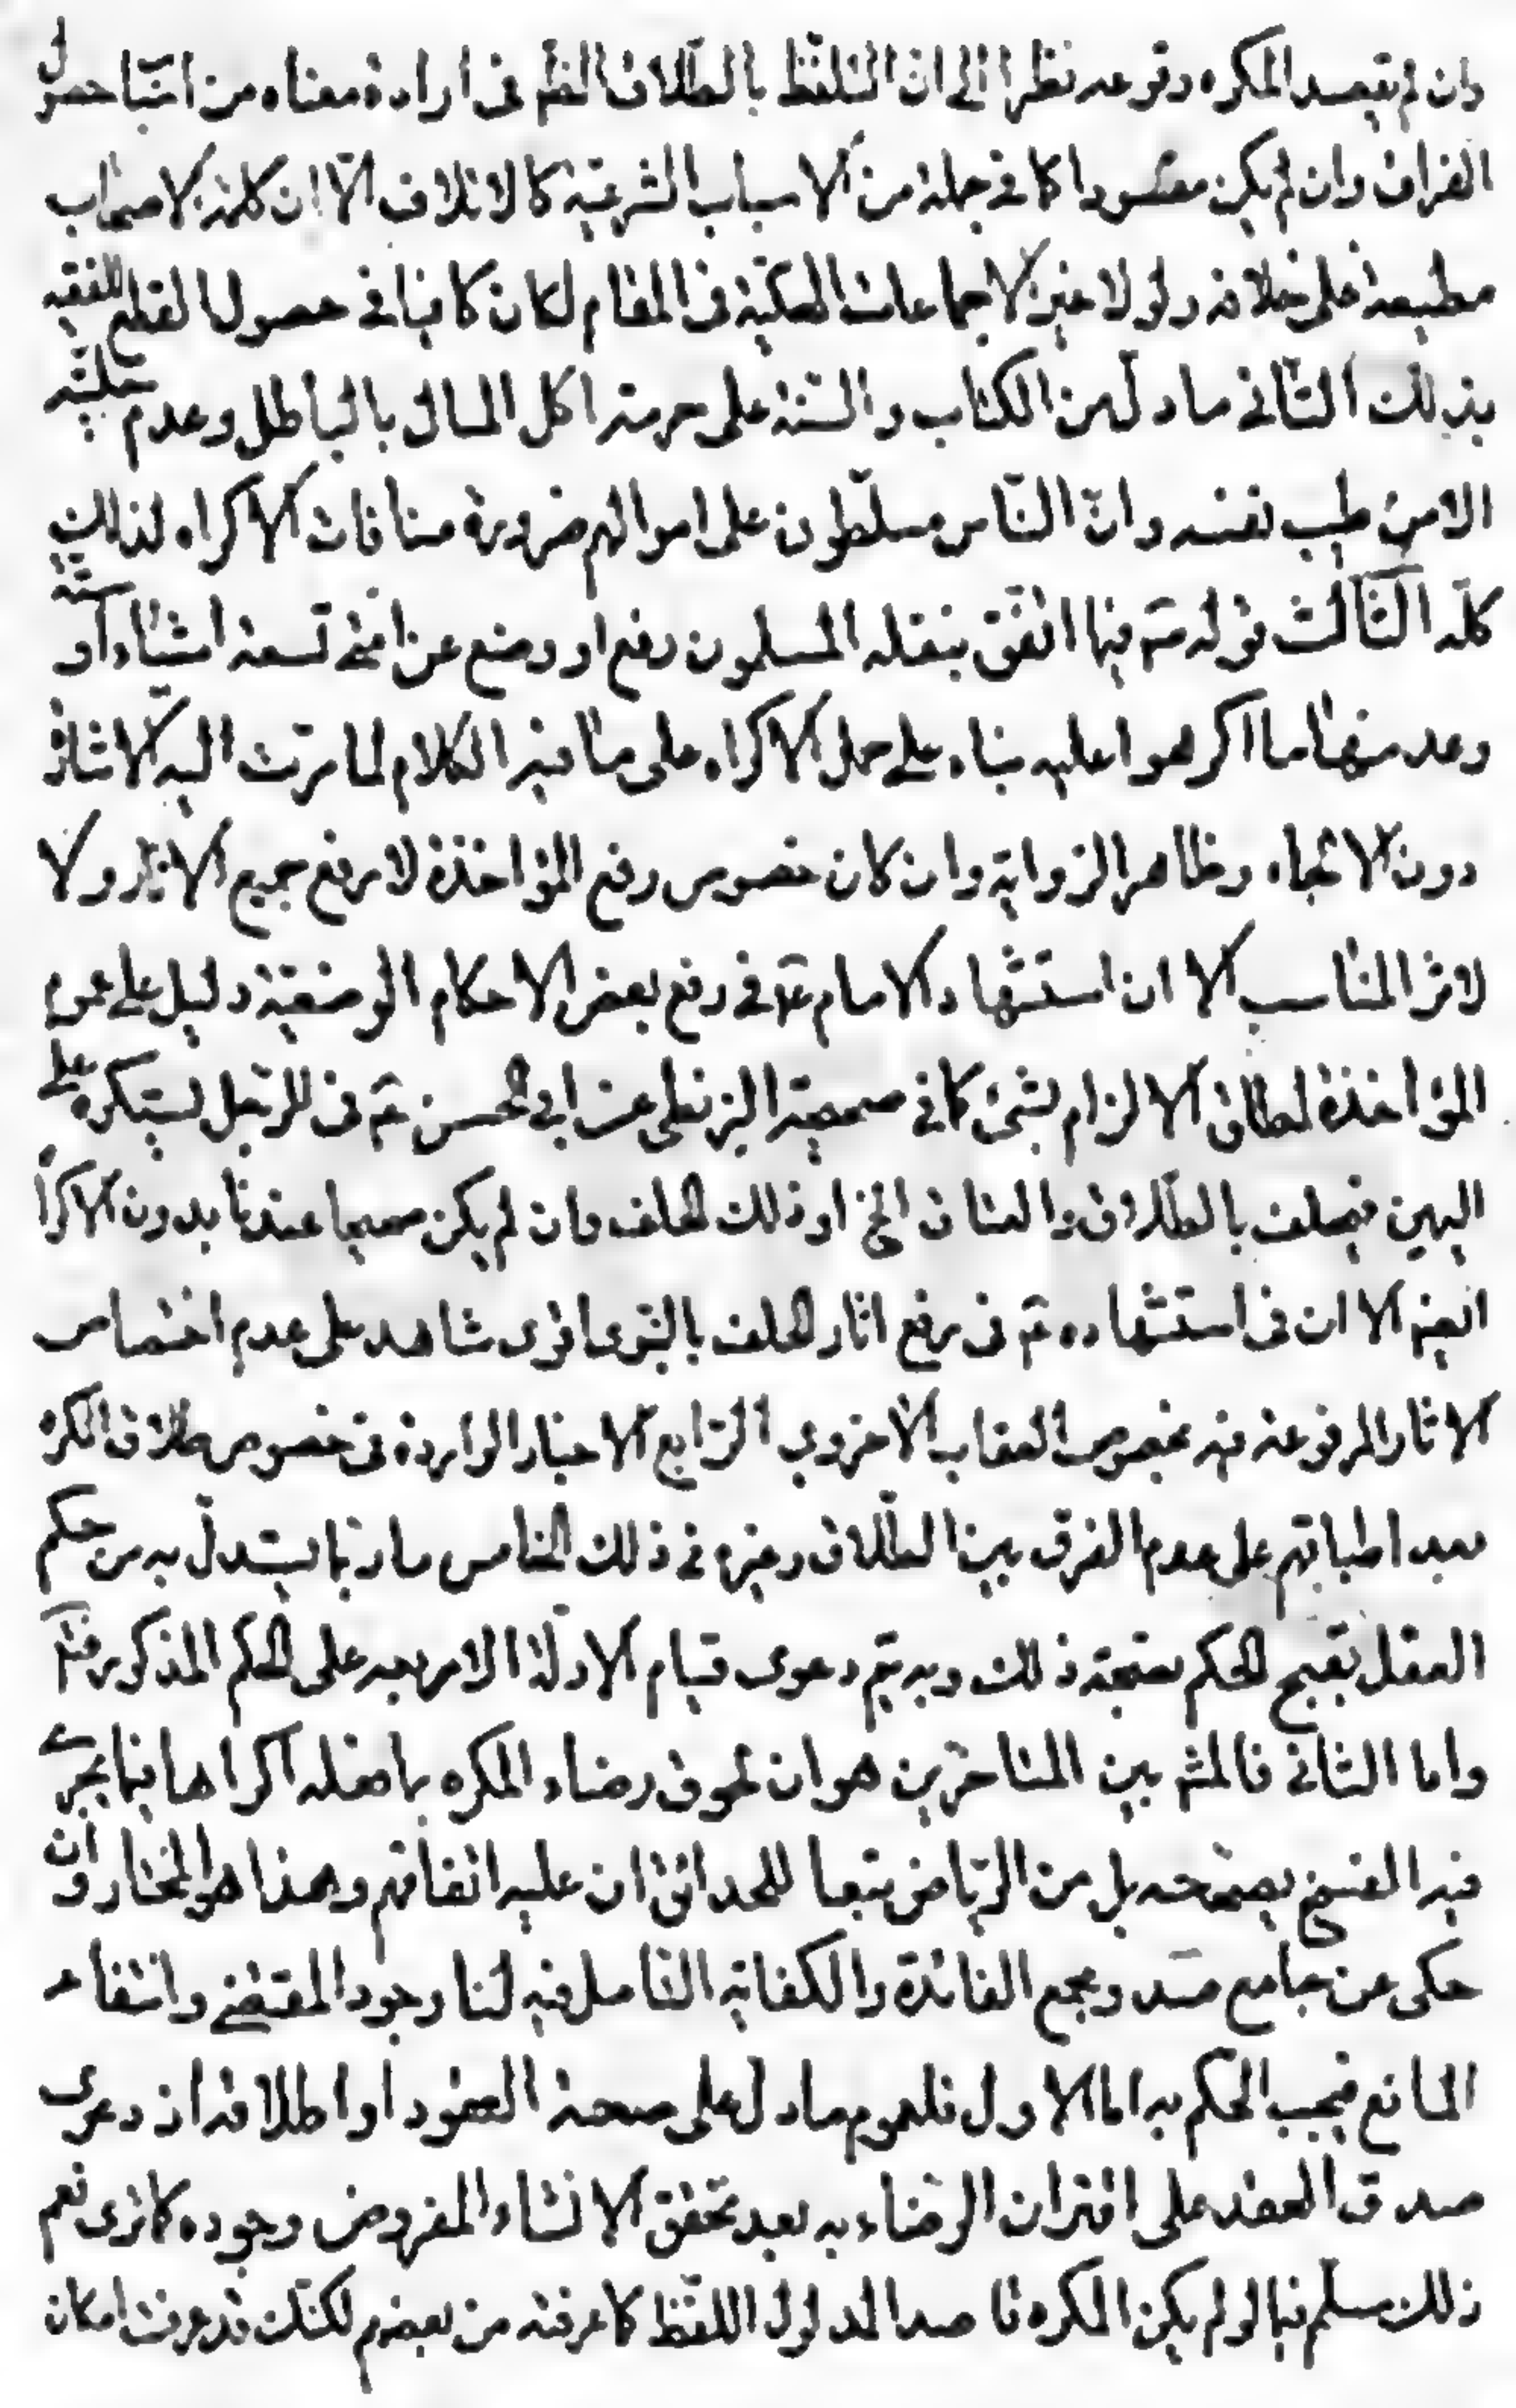 وان لم يقصد المكره وقوعه نظرا الى ان التلفظ بالطلاق الظم فى ارادة معناه من اسباب حصول
الفراق وان لم يكن مقصودا كما فى جملة من الاسباب الشرعية كالاتلاف الا ان كلمة الاصحاب
مطبقة على خلافه ولولا غير الاجماعات المحكية فى المقام لكان كافيا فى حصول القطع للفقيه
بذلك الثانى ما دل من الكتاب والسنة على حرمة اكل المال بالباطل وعدم حليته
الا من طيب نفسه وان الناس مسلطون على اموالهم ضرورة منافات الاكراه لذلك
كله الثالث قوله ص فيما اتفق بنقله المسلمون رفع او وضع عن امتى تسعة اشياء او ستة
وعد منها ما اكرهوا عليه بناء على حمل الاكراه على ما فيه الكلام لما مرت اليه الاشارة
دون الالجاء وظاهر الرواية وان كان خصوص رفع المؤاخذة لا رفع جميع الاثار ولا
لاثر المناسب الا ان استشهاد الامام ع فى رفع بعض الاحكام الوضعية دليل على عموم
المؤاخذة لمطلق الالزام بشئ كما فى صحيحة البزنطى عن ابى الحسن ع فى الرجل يستكره على
اليمين فيحلف بالطلاق والعتاق الخ اذ ذلك الحلف وان لم يكن صحيحا عندنا بدون الاكراه
ايضم الا ان فى استشهاده ع فى رفع اثار الحلف بالنبوى اقوى شاهد على عدم اختصاص
الاثار المرفوعة فيه بخصوص العقاب الاخروى الرابع الاخبار الواردة فى خصوص طلاق المكره
بعد اطباقهم على عدم الفرق بين الطلاق وغيره فى ذلك الخامس ما ربما يستدل به من حكم
العقل بقبح الحكم بصحة ذلك وبه يتم دعوى قيام الادلة الاربعه على الحكم المذكور فتم
واما الثانى فالمشهم بين المتاخرين هو ان لحوق رضاء المكره بما فعله اكراها فيما يجرى
فيه الفسخ يصححه بل من الرياض تبعا للحدائق ان عليه اتفاقهم وهذا هو المختار وان
حكى عن جامع صد ومجمع الفائدة والكفاية التامل فيه لنا وجود المقتضى وانتفاء
المانع فيجب الحكم به اما الاول فلعموم ما دل على صحة العقود او اطلاقه اذ دعوى
صدق العقد على اقتران الرضاء به بعد تحقق الانشاء المفروض وجوده كما ترى نعم
ذلك مسلم فيما لو لم يكن المكره قاصدا لمدلول اللفظ كما عرفته من بعضهم لكنك قد عرفت امكان